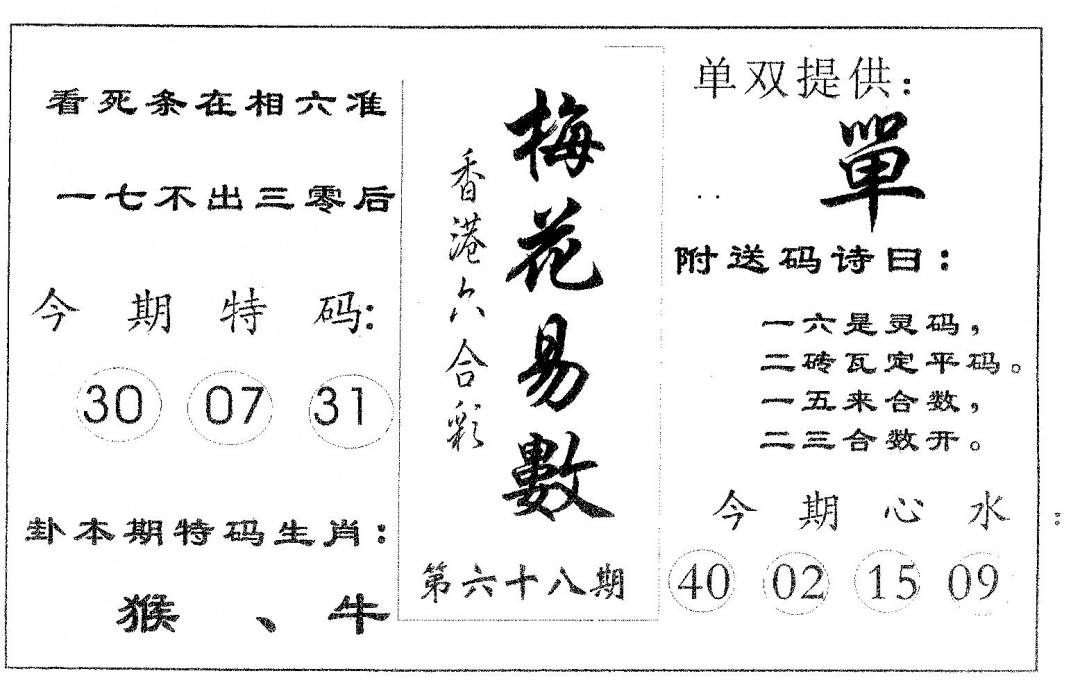 看死条在相六准
一七不出三零后
今期特码:
30 07 31
卦本期特码生肖:
猴、牛
梅花易數
香港六合彩
第六十八期
单双提供:
單
附送码诗曰:
一六是灵码,
二砖瓦定平码。
一五来合数,
二三合数开。
今期心水:
40 02 15 09